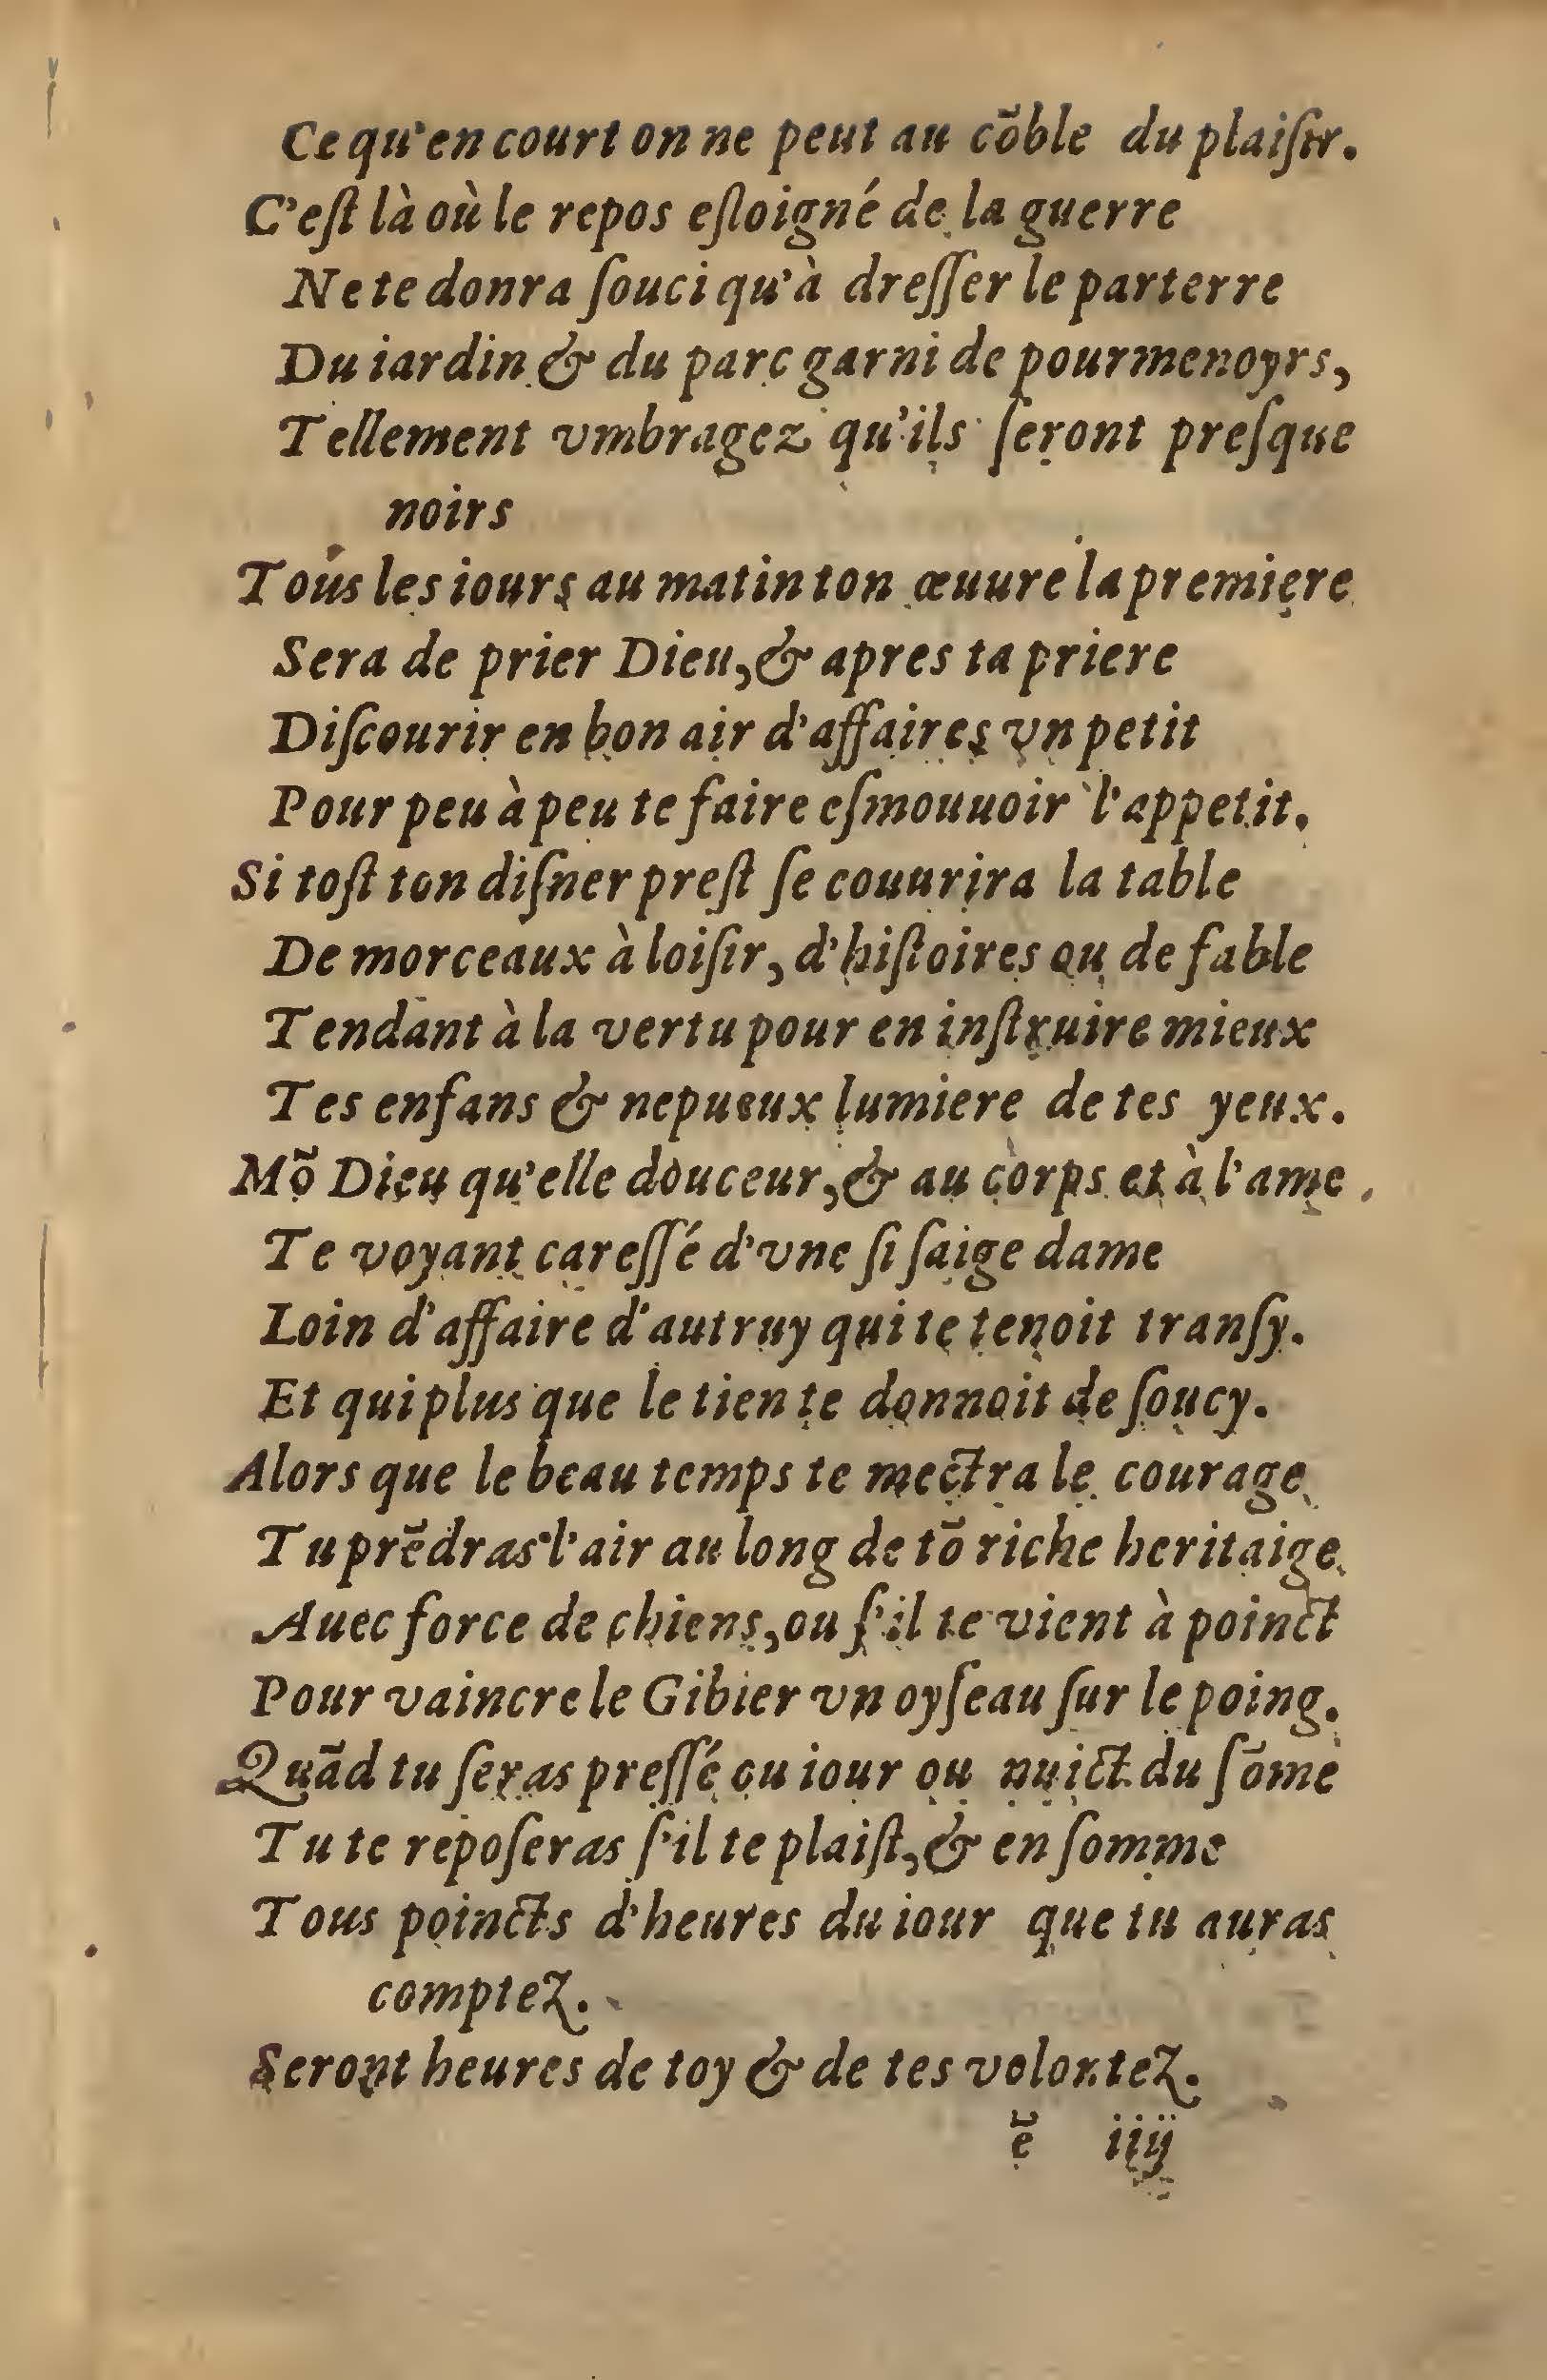 Ce qu'en court on ne peut au cõble du plaiſir.
C'eſt là où le repos eſloigné de la guerre
Ne te donra ſouci qu'à dreſſer le parterre
Du iardin & du parc garni de pourmenoyrs,
Tellement vmbragez qu'ils ſeront preſque
noirs
Tous les iours au matin ton œuure la premiere
Sera de prier Dieu, & apres ta priere
Diſcourir en bon air d'affaires vn petit
Pour peu à peu te faire eſmouuoir l'appetit.
Si toſt ton diſner preſt ſe couurira la table
De morceaux à loiſir, d'hiſtoires ou de fable
Tendant à la vertu pour en inſtruire mieux
Tes enfans & nepueux lumiere de tes yeux.
Mõ Dieu qu'elle douceur, & au corps et à l'ame
Te voyant careſſé d'vne ſi ſaige dame
Loin d'affaire d'autruy qui te tenoit tranſy.
Et qui plus que le tien te donnoit de ſoucy.
Alors que le beau temps te mectra le courage
Tu prẽdras l'air au long de tõ riche heritaige
Auec force de chiens, ou ſ'il te vient à poinct
Pour vaincre le Gibier vn oyſeau ſur le poing.
Quãd tu ſeras preſſé ou iour ou nuict du ſõme
Tu te repoſeras ſ'il te plaiſt, & en ſomme
Tous poincts d'heures du iour que tu auras
comptez.
Seront heures de toy & de tes volontez.
ẽ iiij